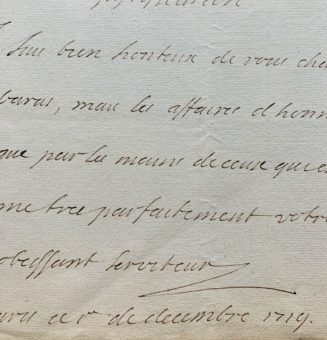 suis bien honteux de vous
baras, mais les affaires d'honn
que par les mains de ceux qui
me tres parfaitement votre
obeissant serviteur
ce 1r de decembre 1719.